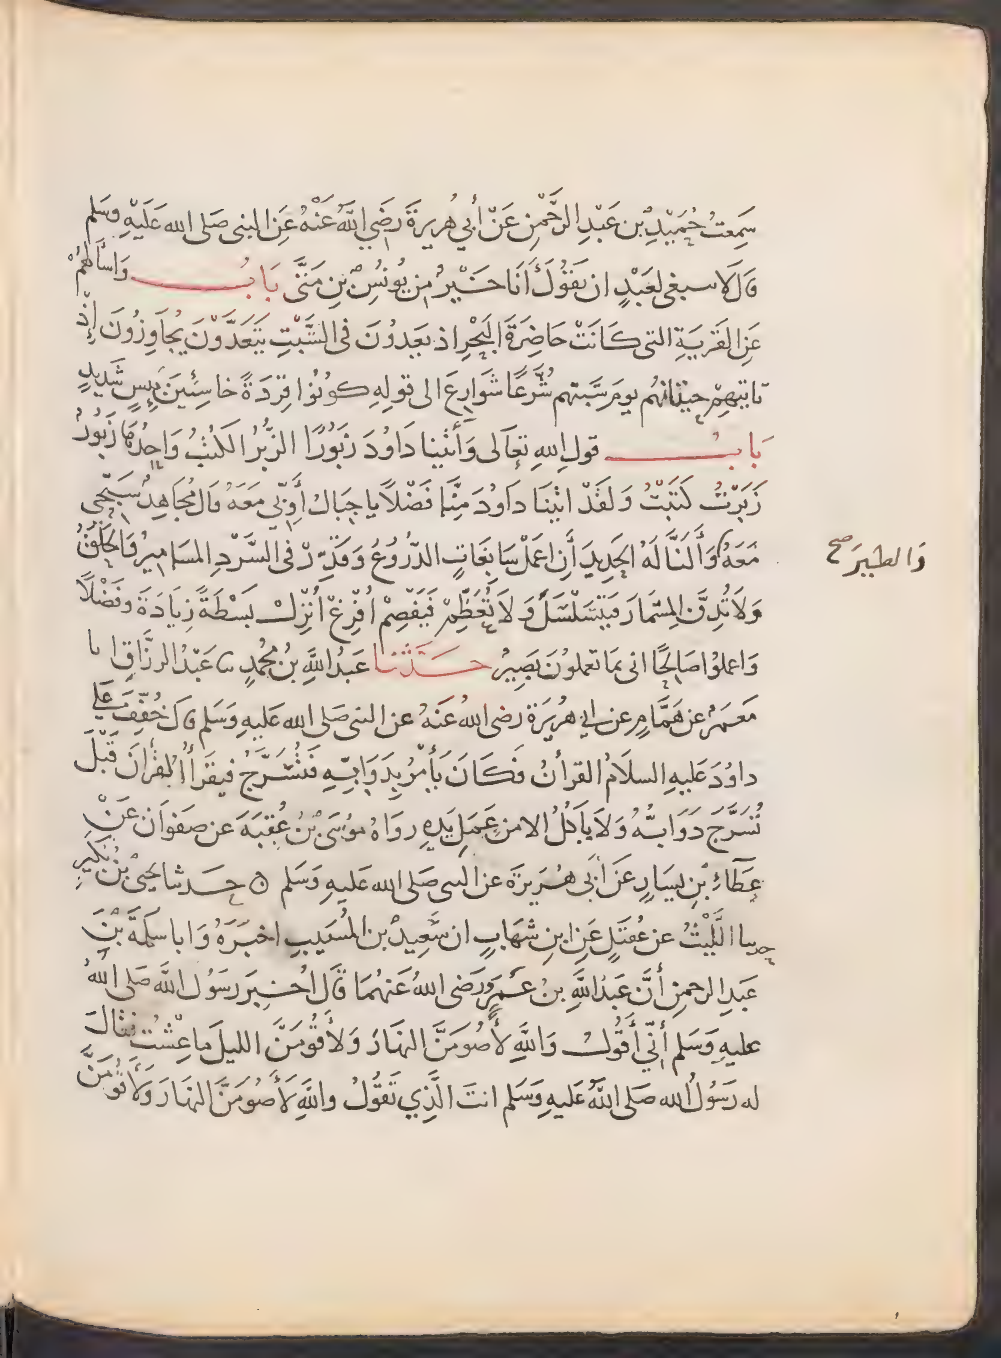 سَمِعتُ حُمَيْدِ بْن عَبْدِ الرَّحْمٰنِ عَنْ أَبِي هُرَيرَةَ رَضِيَ اللَّهُ عَنْهُ عَنِ النبى صَلى الله عَلَيْهِ وسَلم
قال لا ينبغى لعَبْدٍ ان يَقُولَ أَنَا خَيْرٌ مِن يُونُسَ بْنِ مَتَّى بَابُ وَاسأَلهُمْ
عَنِ القَريَةِ التى كَانَتْ حَاضِرَةَ البَحْرِ اذ يَعدُونَ فى السَّبْتِ يَتَعَدَّوْنَ يُجَاوِزُونَ إِذْ
تاتيهِمْ حيتَانهُم يومَ سَبتهم شُرَّعًا شَوَارِعَ الى قولِهِ كونُوا قِرَدَةً خاسِئينَ بَئِيسٍ شَدِيدٍ
بَابُ قول اللهِ تعَالى وَأتَينا دَاوُدَ زَبُورًا الزُّبُرُ الكُتُبُ وَاحِدُهَا زَبُورٌ
زَبَرْتُ كَتَبْتُ وَلَقَدْ اتَيْنَا دَاوُدَ مِنَّا فَضْلًا يا جِبَالُ أَوِّبِي مَعَهُ قال مُجَاهِدٌ سَبِّحِى
مَعَهُ وَأَلَنَّا لَهُ الحَدِيدَ أَنِ اعمَلْ سَابِغَاتٍ الدُّرُوعُ وَقَدِّرْ فى السَّرْدِ المسَامِيرُ وَالحَلَقُ
وَالطيرَ صح
وَلَا تُدِقَّ المِسْمَارَ فيَتَسَلْسَلَ وَلَا تُعَظِّمْ فَيَفْصِمْ أفْرِغْ أَنْزِلْ بَسْطَةً زِيَادَةً وفَضْلًا
وَاعملوُا صَالِحًا انى بمَا تعملوُنَ بَصِيرٌ حَدَّثَنا عَبدُ اللَّهِ بنُ مُحَمدٍ نا عَبْدُ الرزَّاقِ انا
مَعمَرٌ عن هَمَّامٍ عن ابى هُرَيرَة رضى الله عَنهُ عن النبى صَلى الله عَليهِ وَسَلم قال خُفِّفَ عَلى
داوُدَ عَليهِ السلَامُ القرأنُ فكَانَ يَأمُرُ بِدَوَابِّهِ فَتُسْرَجُ فيَقرَأُ القُرأنَ قَبْلَ
تُسْرَجَ دَوَابُّهُ وَلَا يأكلُ الا من عَمَلِ يَدِهِ رواهُ مُوسَى بْنُ عُقبَةَ عن صفوَان عَنْ
عطَآءِ بْنِ يسَارٍ عَنْ أبى هُرَيرَةَ عن النبى صَلى الله عَليهِ وَسَلم ه حَدثنا يحيى بْنُ بُكَيرٍ
حدثنا اللَّيْثُ عن عُقَيلٍ عَنِ ابنِ شِهَابٍ ان سَعِيدَ بْن المُسَيبِ اخبَرَهُ وَابا سلَمَةَ بْنَ
عبدِ الرحمنِ أَنَّ عَبدَ اللَّهِ بنَ عَمرٍو رَضى اللهُ عَنهُمَا قَالَ اُخبِرَ رَسُول اللَّه صَلى اللَّهُ
عليهِ وَسَلم أَنِّي أَقُولُ وَاللَّهِ لَأَصُومَنَّ النهَارَ وَلَأَقُومَنَّ الليلَ ما عِشْتُ فقَالَ
له رَسُولُ الله صَلى اللَّهُ عَليهِ وَسَلم انتَ الَّذِي تَقُولُ واللَّهِ لَأَصُومَنَّ النهَارَ وَلَأَقُومَنَّ